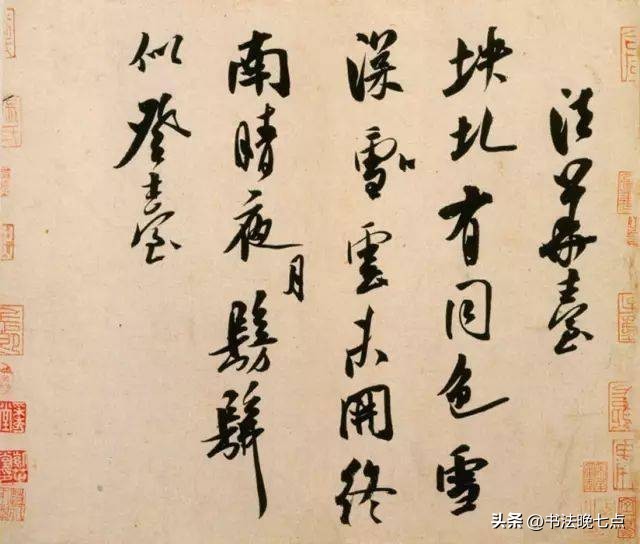 法華臺
坱圠有同色雪
深雪雲未開終
南晴夜月髣髴
似登臺
头条 @书法晚七点